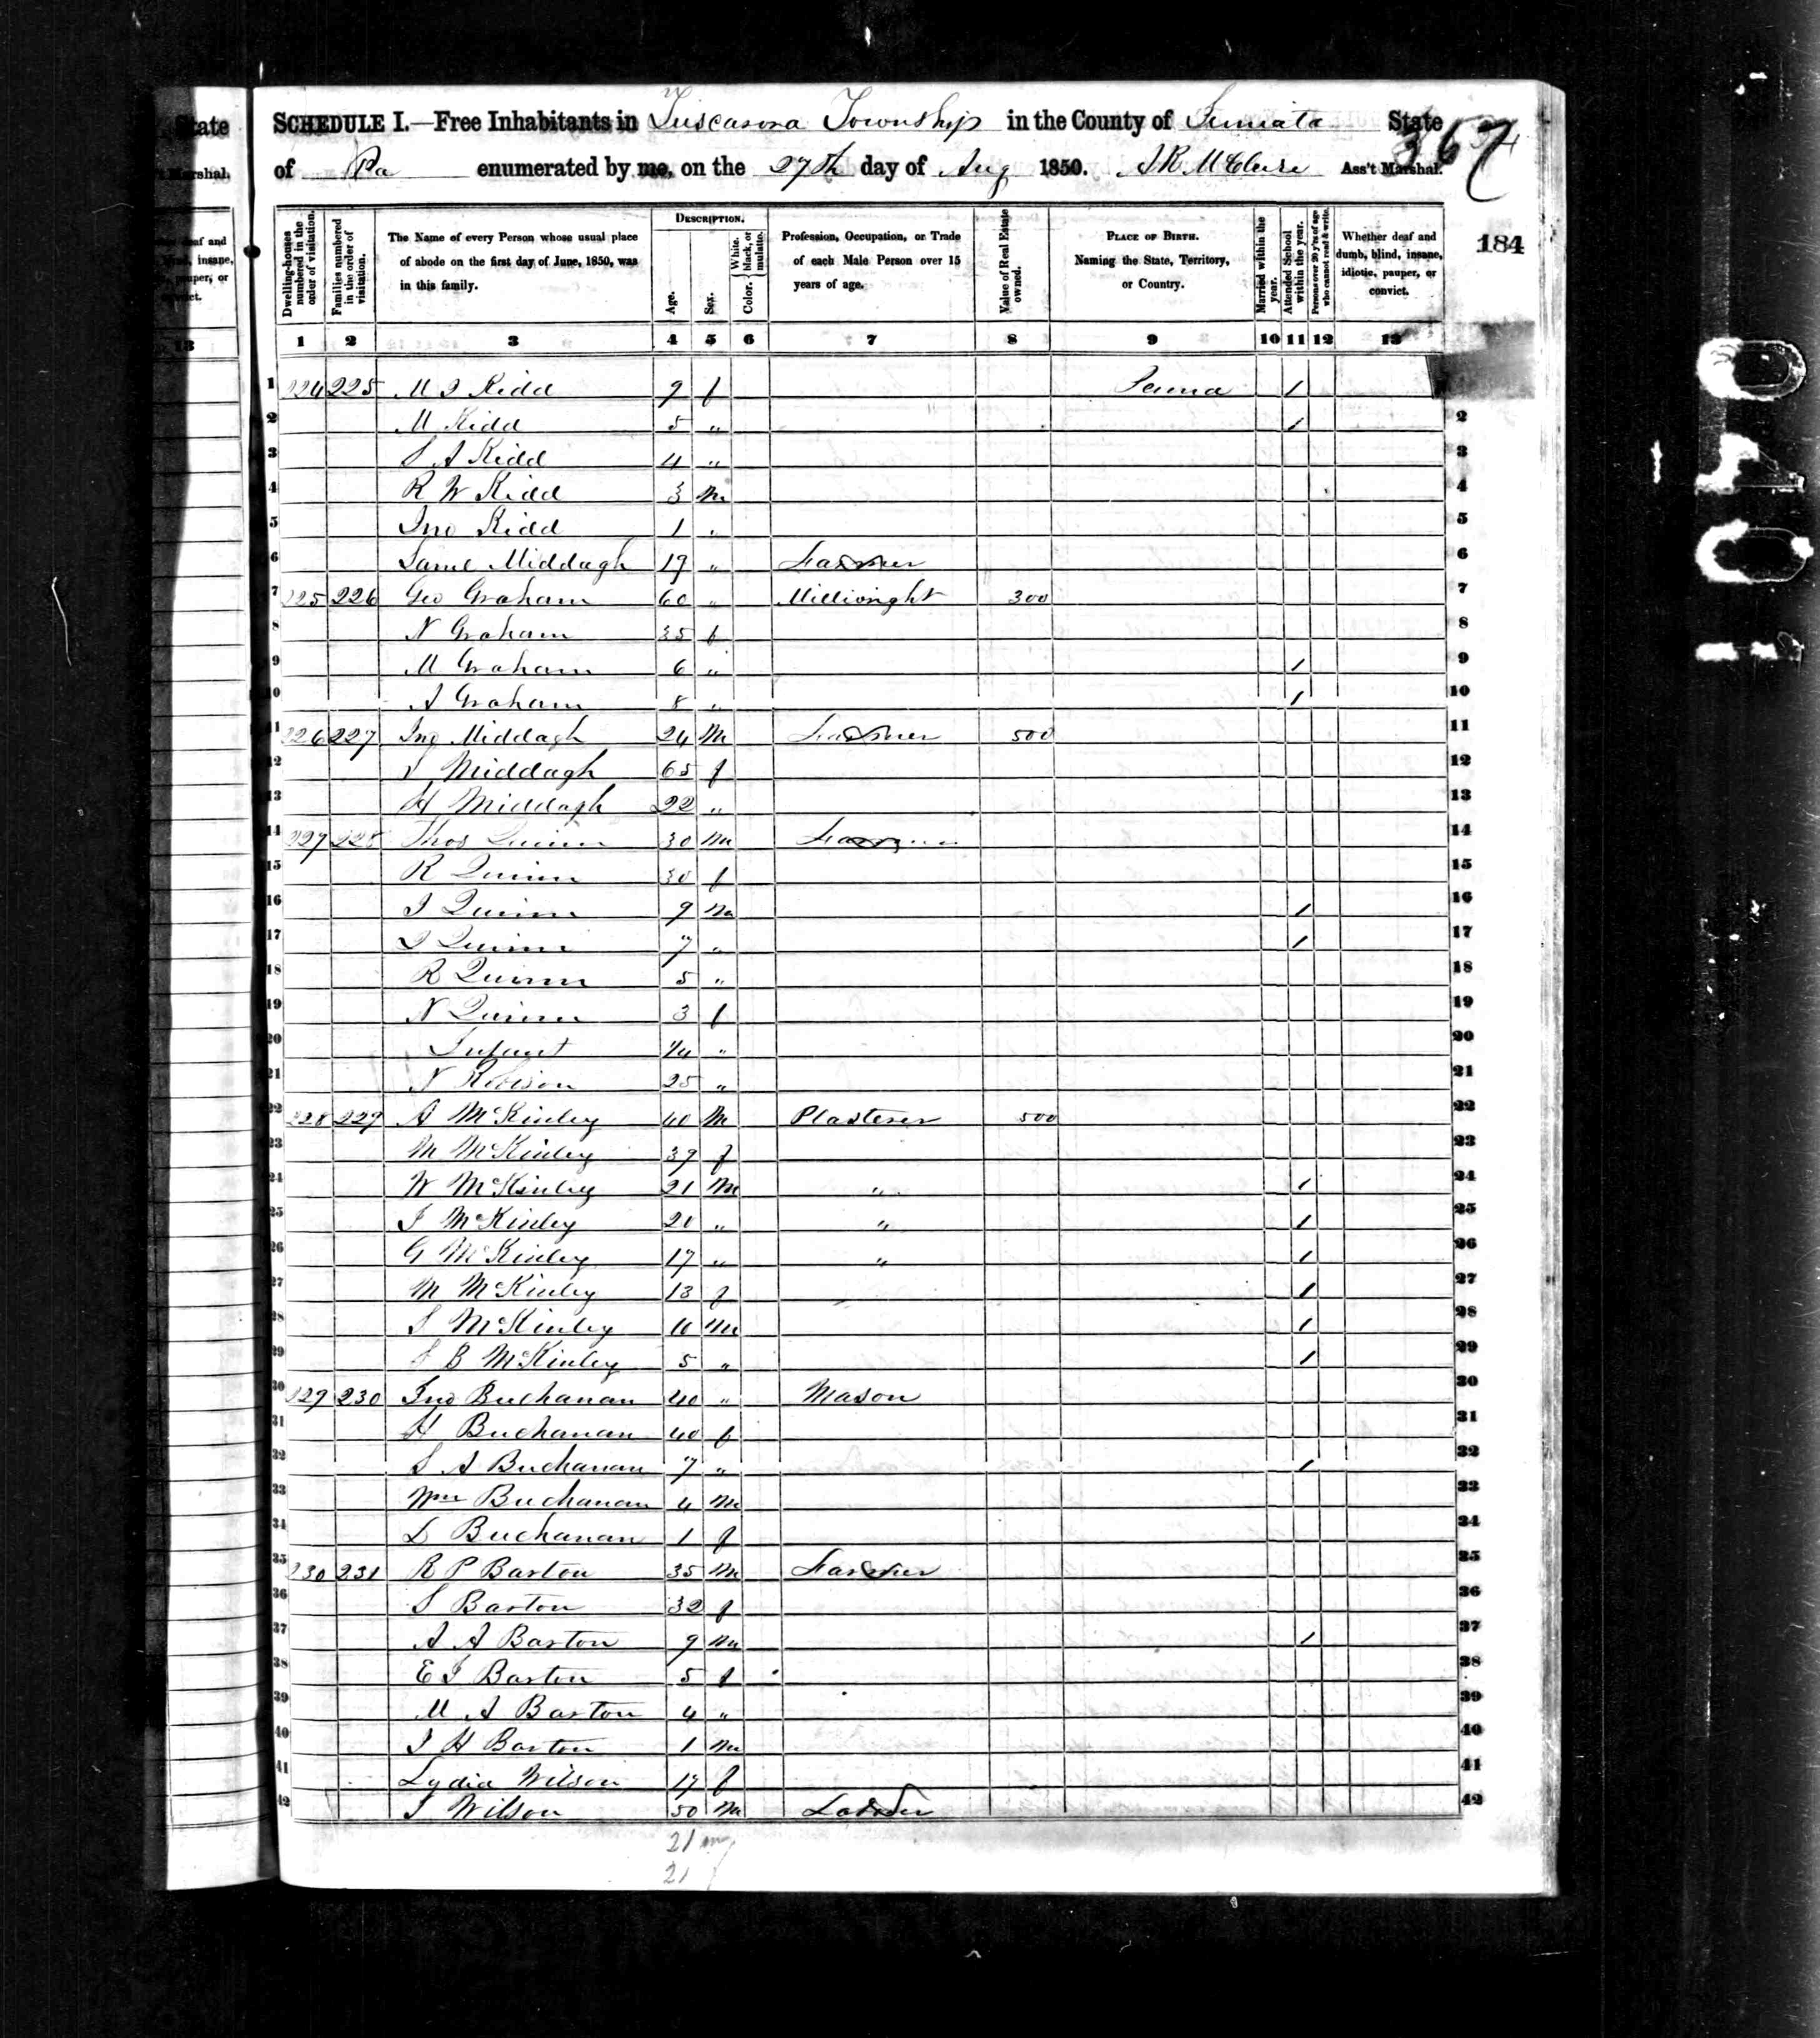 State
SCHEDULE I.—Free Inhabitants in Tuscarora Township in the County of Juniata State
of Pa enumerated by me, on the 27th day of Aug 1850. J R McClure Ass't Marshal.
't Marshal.
367
184
Dwelling-houses numbered in the order of visitation.
Families numbered in the order of visitation.
The Name of every Person whose usual place of abode on the first day of June, 1850, was in this family.
DESCRIPTION.
Age.
Sex.
Color. { White, black, or mulatto.
Profession, Occupation, or Trade of each Male Person over 15 years of age.
Value of Real Estate owned.
PLACE OF BIRTH. Naming the State, Territory, or Country.
Married within the year.
Attended School within the year.
Persons over 20 y'rs of age who cannot read & write.
Whether deaf and dumb, blind, insane, idiotic, pauper, or convict.
deaf and
insane,
pauper, or
13
1 2 3 4 5 6 7 8 9 10 11 12 13
1 224 225 M J Kidd 9 f Penna / 
2 M Kidd 5 " / 2
3 S A Kidd 4 " 3
4 R W Kidd 3 m 4
5 Jno Kidd 1 " 5
6 Saml Middagh 19 " Farmer 6
7 225 226 Geo Graham 60 " Millwright 300 7
8 N Graham 35 f 8
9 M Graham 6 " / 9
10 A Graham 8 " / 10
11 226 227 Jno Middagh 24 M Farmer 500 11
12 S Middagh 65 f 12
13 H Middagh 22 " 13
14 227 228 Thos Quinn 30 m Farmer 14
15 R Quinn 30 f 15
16 J Quinn 9 m / 16
17 J Quinn 7 " / 17
18 R Quinn 5 " 18
19 N Quinn 3 f 19
20 Infant 1/4 " 20
21 N 25 " 21
22 228 229 A McKinley 40 M Plasterer 500 22
23 M McKinley 39 f 23
24 W McKinley 21 M " / 24
25 J McKinley 20 " " / 25
26 G McKinley 17 " " / 26
27 M McKinley 13 f / 27
28 S McKinley 10 m / 28
29 S B McKinley 5 " / 29
30 229 230 Jno Buchanan 40 " Mason 30
31 H Buchanan 40 f 31
32 S A Buchanan 7 " / 32
33 Wm Buchanan 4 m 33
34 L Buchanan 1 f 34
35 230 231 R P Barton 35 m Farmer 35
36 S Barton 32 f 36
37 A A Barton 9 m / 37
38 E J Barton 5 f 38
39 M A Barton 4 " 39
40 J H Barton 1 m 40
41 Lydia Wilson 17 f 41
42 J Wilson 50 m Laborer 42
21 m
21 f
0401